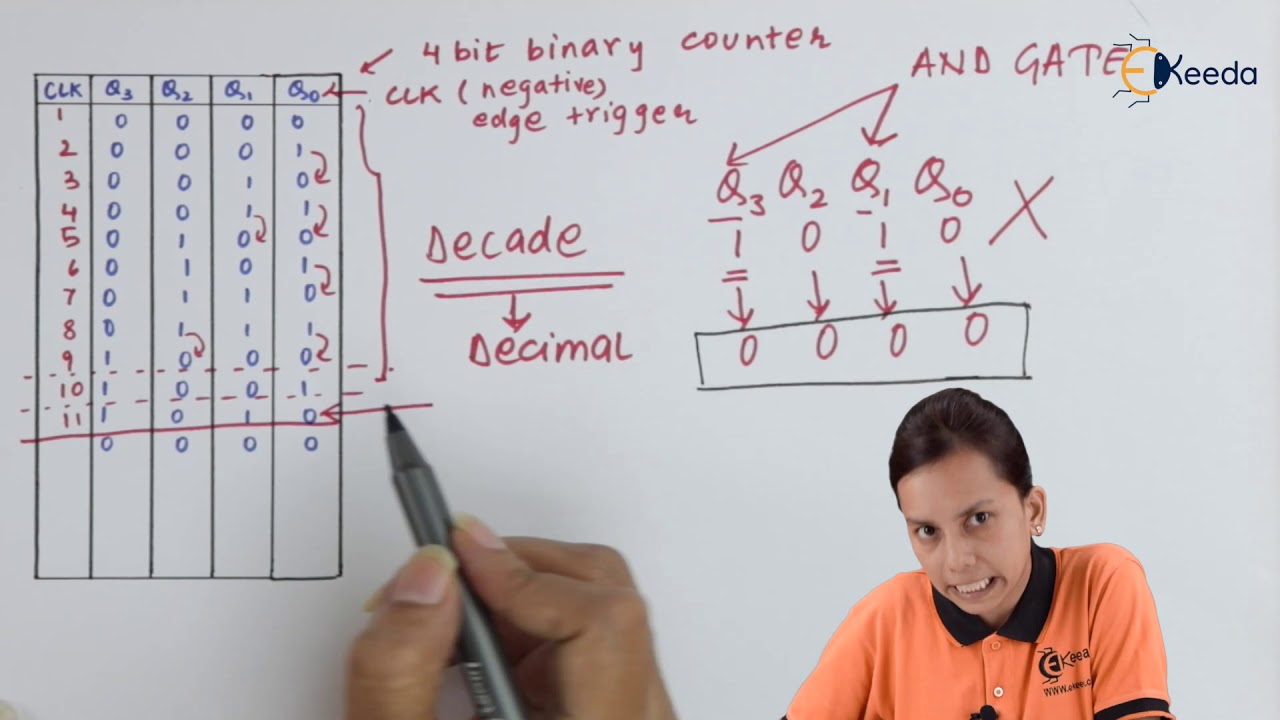 4 bit binary counter
CLK (negative)
edge trigger
AND GATE
EKeeda
CLK Q3 Q2 Q1 Q0
1 0 0 0 0
2 0 0 0 1
3 0 0 1 0
4 0 0 1 1
5 0 1 0 0
6 0 1 0 1
7 0 1 1 0
8 0 1 1 1
9 1 0 0 0
10 1 0 0 1
11 1 0 1 0
0 0 0 0
Decade
Decimal
Q3 Q2 Q1 Q0
1 0 1 0
0 0 0 0
EKeeda